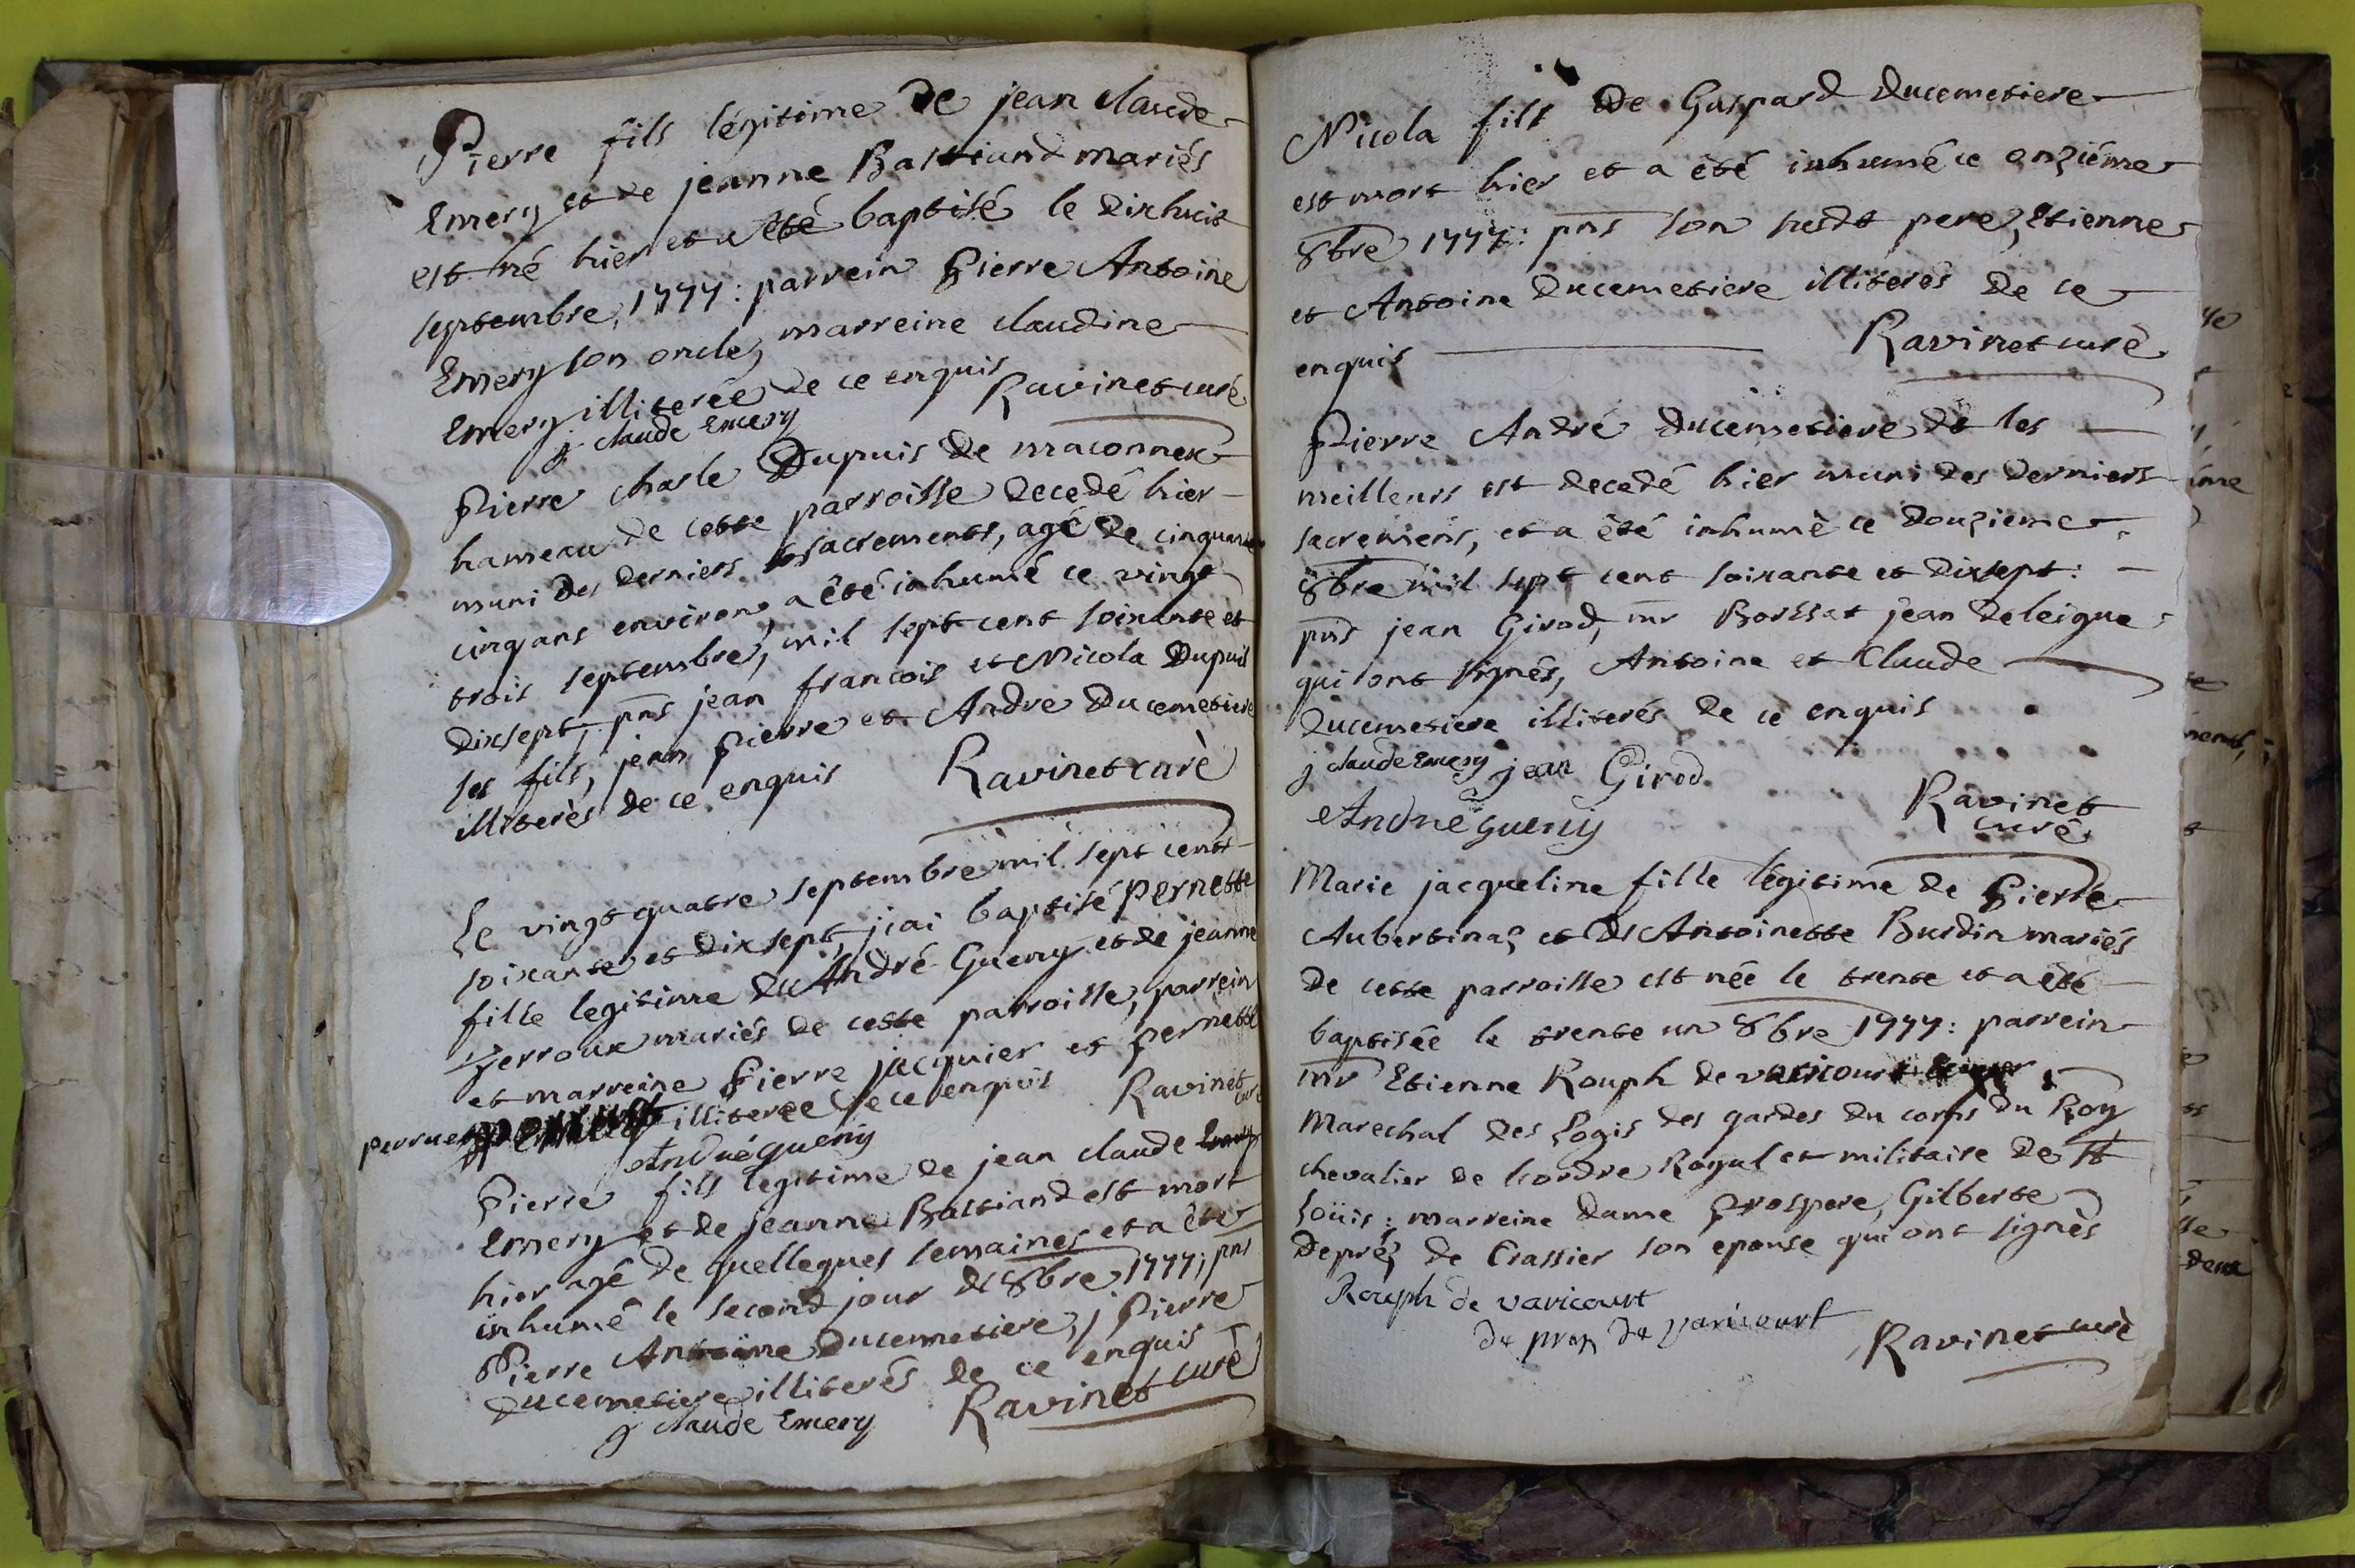 Pierre fils légitime de jean claude
Emery et de jeanne Bastiand mariés
est né hier et a été baptisé le dixhuit
septembre, 1777: parrein Pierre Antoine
Emery son oncle, marreine claudine
Emery illiterée de ce enquis Ravinet curé
j claude Emery
Pierre charle Dupuis de maconnex
hameau de cette parroisse decedé hier
muni des derniers sacrements, agé de cinquante
cinq ans environ, a été inhumé ce vingt
trois septembre, mil sept cent soixante et
dixsept, pns jean francois et Nicola Dupuis
ses fils, jean pierre et Andre Ducemetiere
illiterès de ce enquis Ravinet curè
Le vingt quatre septembre mil sept cent
soixante et dixsept, jiai baptisé pernette
fille legitime du André Gueny et de jeanne
Verroux mariés de cette parroisse, parrein
et marreine Pierre jacquier et pernette
perruet illiterée de ce enquis Ravinet curé
André gueny
Pierre fils legitime de jean claude
Emery et de jeanne Bastiand est mort
hier agé de quelleques semaines et a été
inhumé le second jour de 8bre 1777; pns
Pierre Antoine Ducemetiere, j Pierre
Ducemetiere illiterés de ce enquis
j claude Emery Ravinet curé
Nicola fils de Gaspard Ducemetiere
est mort hier et a été inhumé ce onziéme
8bre 1777: pns son susdt pere, Etienne
et Antoine Ducemetiere illiterés de ce
enquis Ravinet curè
Pierre André Ducemetiere dt les
meilleurs est decedé hier muni des derniers
sacremens, et a été inhumè ce douzieme
8bre mil sept cent soixante et dixsept:
pns jean Girod, mr Borssat jean deleigue
qui ont signés, Antoine et Claude
Ducemetiere illiterés de ce enquis
j claude Emery jean Girod
André gueny Ravinet
curé
Marie jacqueline fille légitime de Pierre
Aubertinaz et de Antoinette Burdin mariés
de cette parroisse est née le trente et a été
baptisée le trente un 8bre 1777: parrein
mr Etienne Rouph de varicourt
Marechal des Logis des gardes du corps du Roy
chevalier de l'ordre Royal et militaire de St
Loüis: marreine dame Prospere, Gilberte
deprèz de Crassier son epouse qui ont signès
Rouph de varicourt
de prez de varicourt Ravinet curè